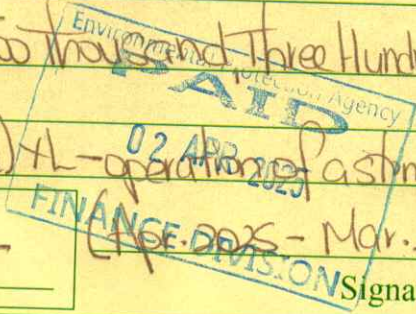 Two Thousand, Three Hund
Environmental Protection Agency
PAID
02 APR 2025
FINANCE DIVISION
-operation of
(Apr. 2025 - Mar.
Signa